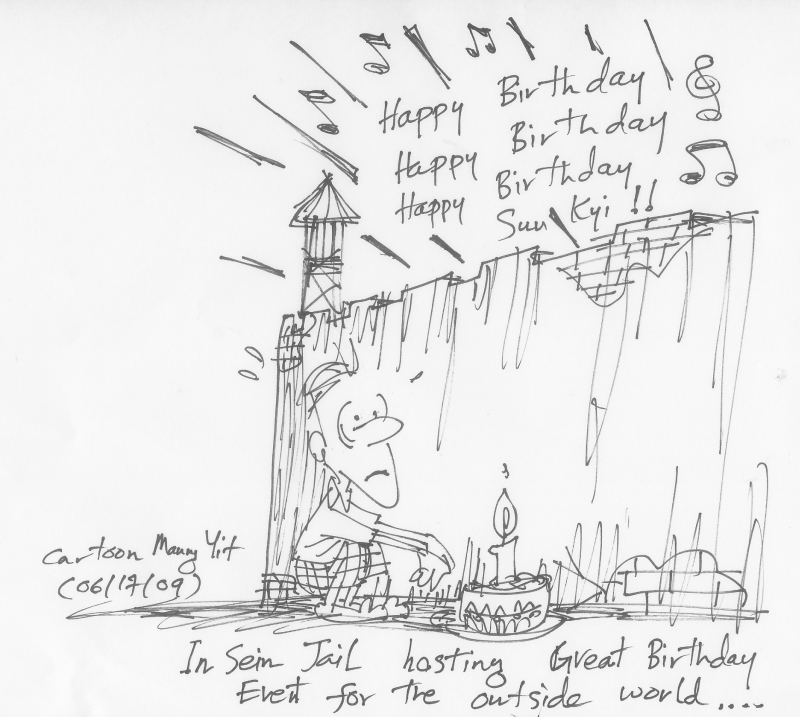 Happy Birthday
Happy Birthday
Happy Birthday
Suu Kyi !!
Cartoon Maung Yit
(06/17/09)
In Sein Jail hosting Great Birthday
Event for the outside world ....